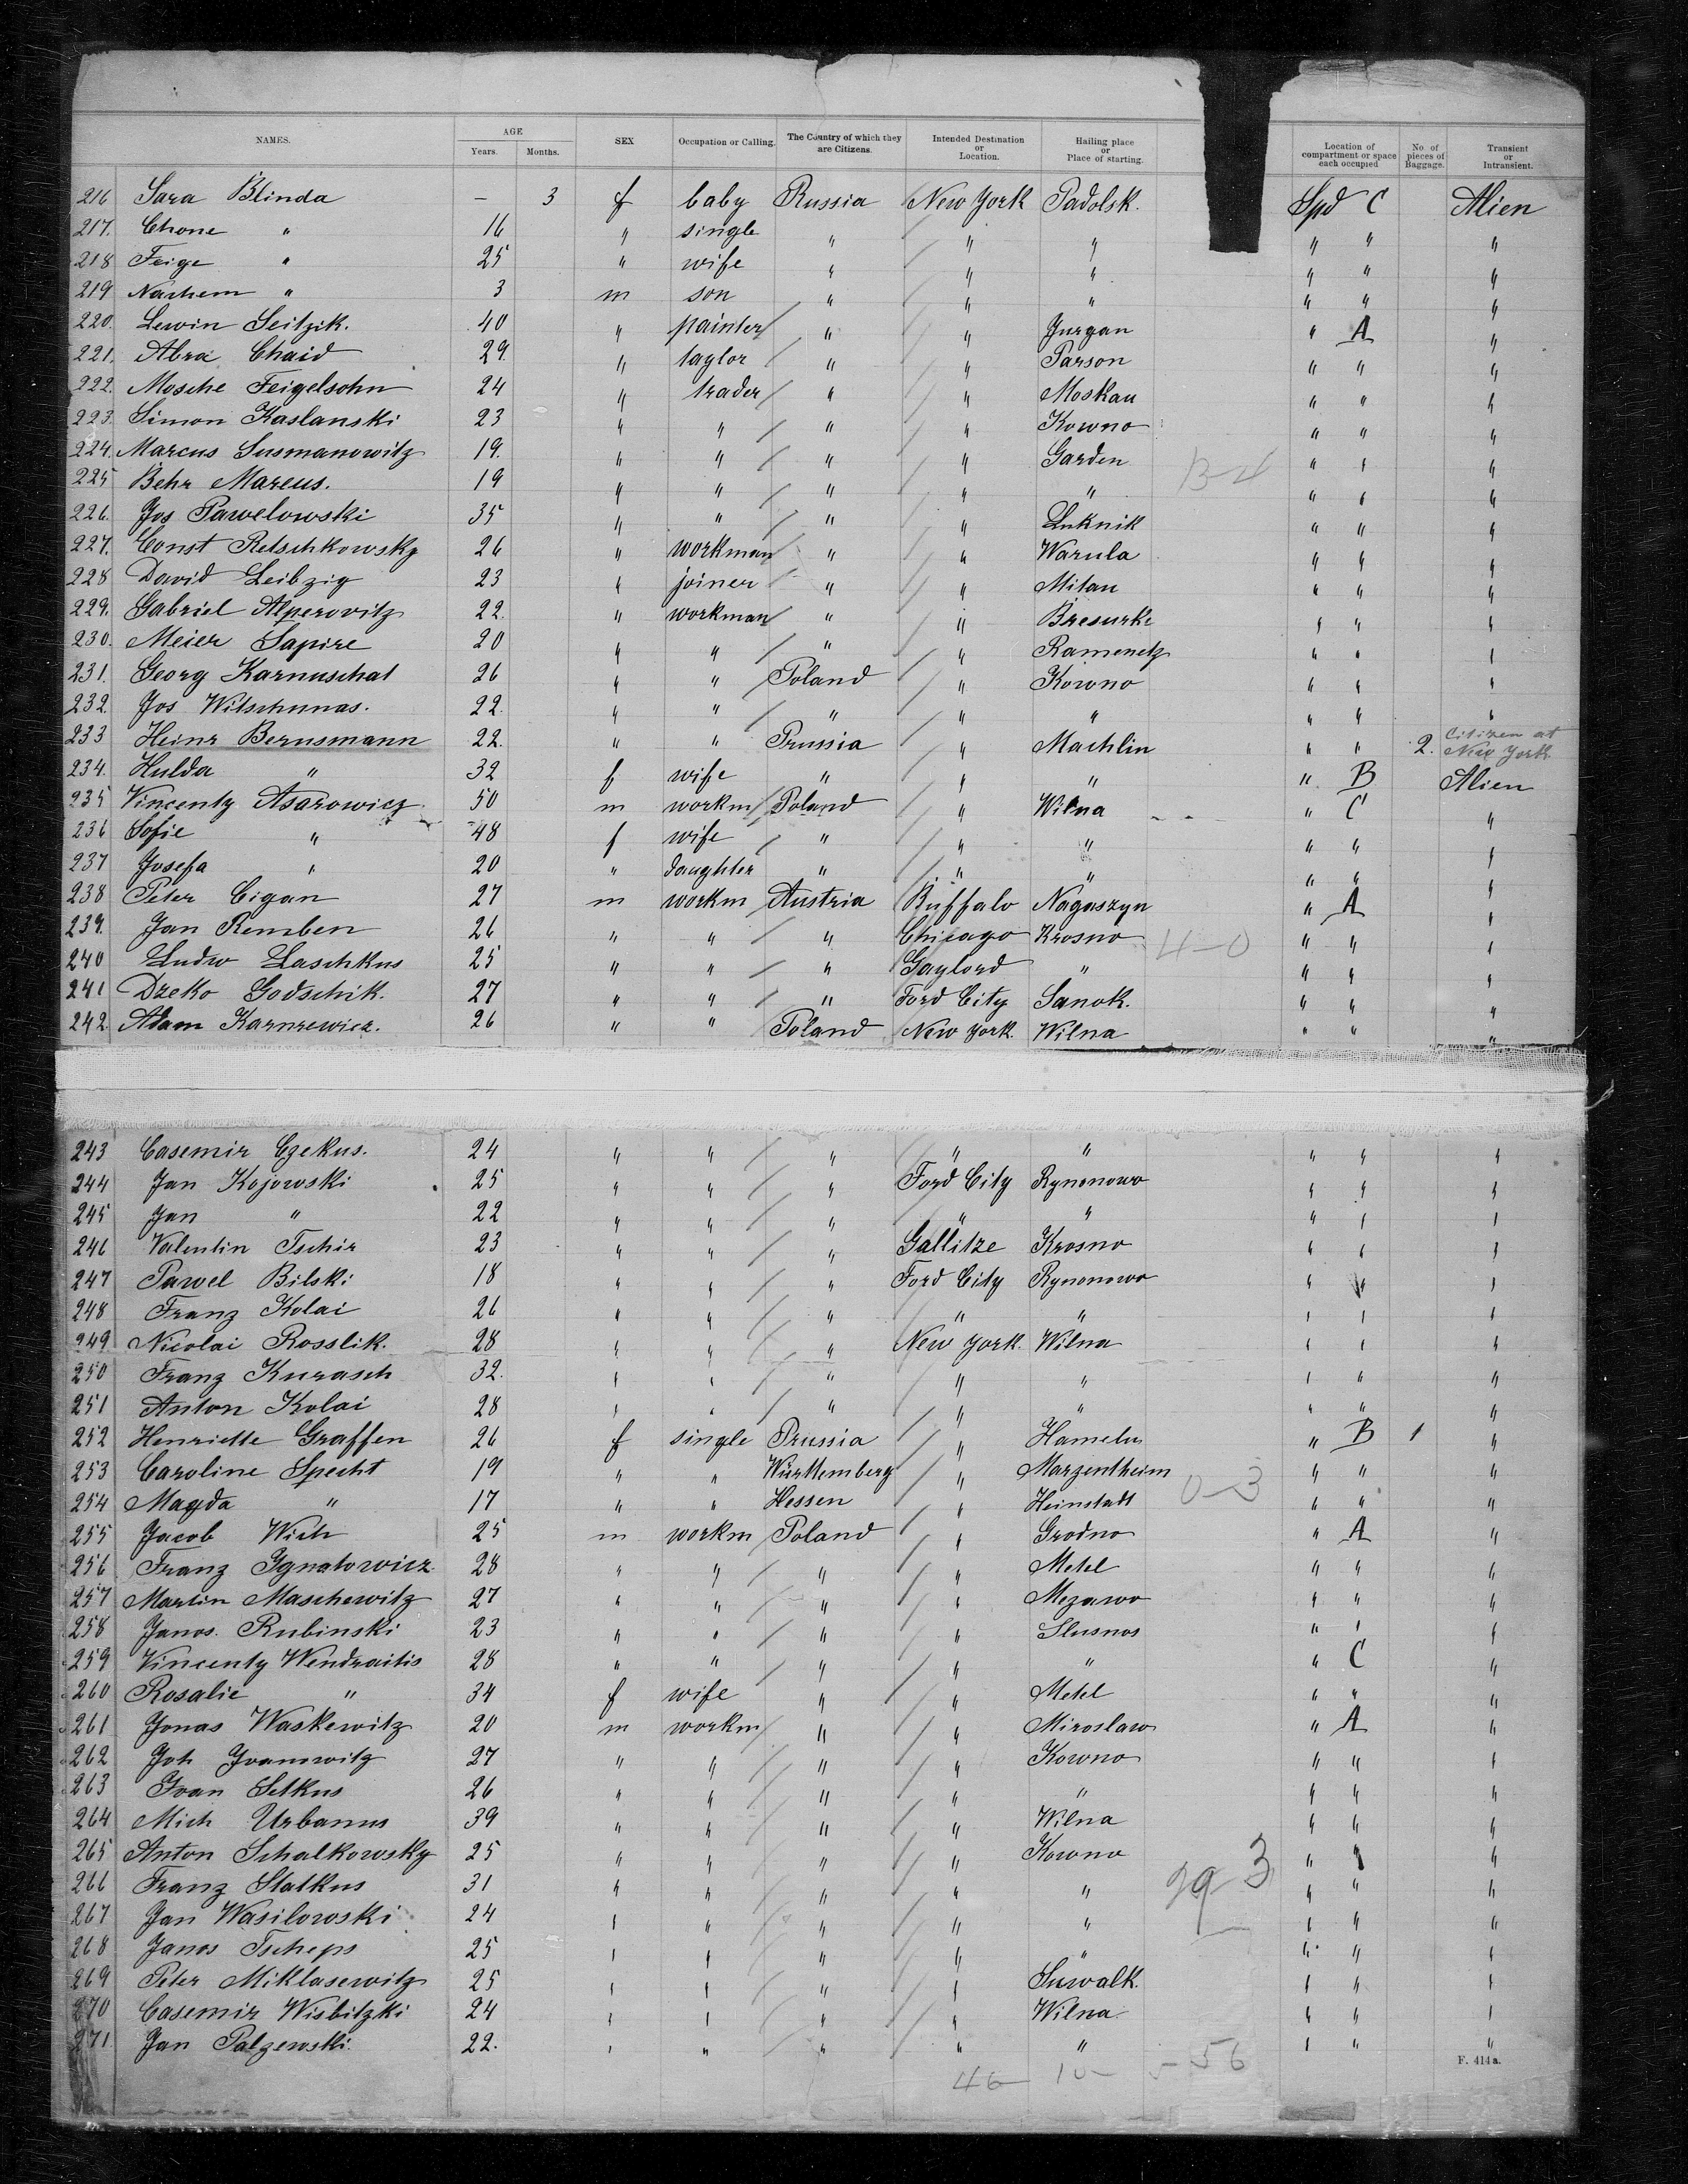 NAMES. AGE Years. Months. SEX Occupation or Calling. The Country of which they are Citizens. Intended Destination or Location. Hailing place or Place of starting. Location of compartment or space each occupied No. of pieces of Baggage. Transient or Intransient.
216 Sara Blinda — 3 f baby Russia New York Padolsk. Spd C Alien
217. Chone " 16 " single " " " " " "
218 Feige " 25 " wife " " " " " "
219 Nachem " 3 m son " " " " " "
220. Lewin Seitzik. 40 " painter " " Jurgan " A "
221. Abra Chaid 29. " taylor " " Parson " " "
222. Mosche Feigelsohn 24 " trader " " Moskau " " "
223. Simon Kaslanski 23 " " " " Kowno " " "
224. Marcus Susmanowitz 19. " " " " Garden " " "
225 Behr Marcus. 19 " " " " " " " "
226. Jos Pawelowski 35 " " " " Luknik " " "
227. Const Retschkowsky 26 " workman " " Warula " " "
228 David Leibzig 23 " joiner " " Mitau " " "
229. Gabriel Alperovitz 22. " workman " " Bresurke " " "
230. Meier Sapire 20 " " " " Ramenetz " " "
231. Georg Karnuschat 26 " " Poland " Kowno " " "
232. Jos Witschunas. 22. " " " " " " " "
233 Heinr Bernsmann 22. " " Prussia " Machlin " " 2. Citizen at New York
234. Hulda " 32 f wife " " " " B Alien
235 Vincenty Asarowicz 50 m workm Poland " Wilna " C "
236 Sofie " 48 f wife " " " " " "
237 Josefa " 20 " daughter " " " " " "
238 Peter Cigan 27 m workm Austria Buffalo Nagaszyn " A "
239. Jan Remben 26 " " " Chicago Krosno 4-0 " " "
240 Ludw Laschkus 25 " " " Gaylord " " " "
241 Dzeko Godschik. 27 " " " Ford City Sanok. " " "
242. Adam Karnrewicz. 26 " " Poland New York. Wilna " " "
243 Casemir Czekus. 24 " " " " " " " "
244 Jan Kojowski 25 " " " Ford City Rynonowo " " "
245 Jan " 22 " " " " " " " "
246 Valentin Tschir 23 " " " Gallitze Krosno " " "
247 Pawel Bilski 18 " " " Ford City Rynonowo " " "
248 Franz Kolai 26 " " " " " " " "
249 Nicolai Rosslik. 28 " " " New York. Wilna " " "
250 Franz Kurasch 32. " " " " " " " "
251 Anton Kolai 28 " " " " " " " "
252 Henriette Graffen 26 f single Prussia " Hameln " B 1 "
253 Caroline Specht 19 " " Württemberg " Marzentheim 0-3 " " "
254 Magda " 17 " " Hessen " Heinstadt " " "
255 Jacob Wich 25 m workm Poland " Grodno " A "
256 Franz Ignatowicz 28 " " " " Metel " " "
257 Martin Maschewitz 27 " " " " Mezawo " " "
258 Janos. Rubinski 23 " " " " Slusnos " " "
259 Vincenty Wendraitis 28 " " " " " " C "
260 Rosalie " 34 f wife " " Metel " " "
261 Jonas Waskewitz 20 m workm " " Miroslaw " A "
262 Joh Ivanowitz 27 " " " " Kowno " " "
263 Ivan Setkus 26 " " " " " " " "
264 Mich Urbanus 39 " " " " Wilna " " "
265 Anton Schalkowsky 25 " " " " Kowno " " "
266 Franz Statkus 31 " " " " " 29 3 " " "
267 Jan Wasilowski 24 " " " " " " " "
268 Janos Tscheps 25 " " " " " " " "
269 Peter Miklasewitz 25 " " " " Suwalk. " " "
270 Casemir Wisbitzki 24 " " " " Wilna " " "
271 Jan Palzewski. 22. " " " " " " " "
46 10 - 56
F. 414 a.